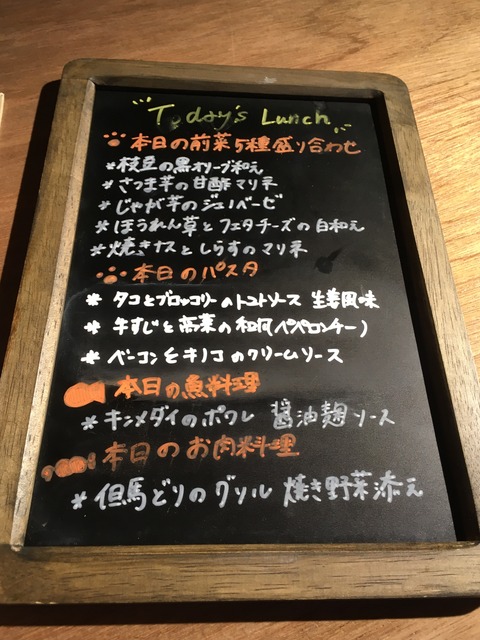 Today's Lunch
本日の前菜5種盛り合わせ
*枝豆の黒オリーブ和え
*さつま芋の甘酢マリネ
*じゃが芋のジェノベーゼ
*ほうれん草とフェタチーズの白和え
*焼きナスとしらすのマリネ
本日のパスタ
* タコとブロッコリーのトマトソース 生姜風味
* 牛すじと高菜の和風ペペロンチーノ
* ベーコンとキノコのクリームソース
本日の魚料理
* キンメダイのポワレ 醤油麹ソース
本日のお肉料理
* 但馬どりのグリル 焼き野菜添え